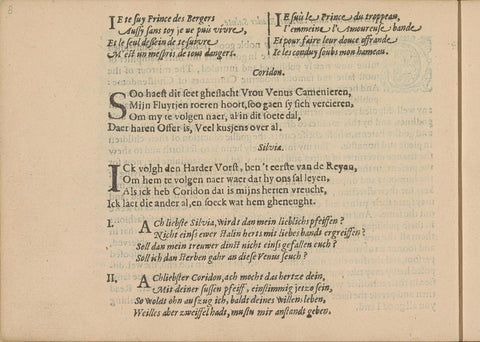 8
IE te suy Prince des Bergers
Aussy sans toy je ne puis vivre,
Et le seul dessein de te suivre
M'est un mespris de tout dangers.
IE suis le Prince du troppeau,
I'emmeine l'Amoureuse bande
Et pour faire leur douce offrande
Ie les conduy soubs mon hameau.
Coridon.
SOo haest dit seet gheslacht Vrou Venus Camenieren,
Mijn Fluytjen roeren hoort, soo gaen sy sich vercieren,
Om my te volgen naer, al in dit soete dal,
Daer haren Offer is, Veel kusjens over al.
Silvia.
ICk volgh den Harder Vorst, ben 't eerste van de Reyen,
Om hem te volgen naer waer dat hy ons sal leyen,
Als ick heb Coridon dat is mijns herten vreucht,
Ick laet die ander al, en soeck wat hem gheneught.
I. ACh liebste Silvia, wirdt dan mein lieblichs pfeiffen?
Nicht eins ewer stalin herts mit liebes bandt ergreiffen?
Soll dan mein trewer dinst nicht eins gefallen euch?
Soll ich dan sterben gahr an diese Venus seuch?
II. ACh liebster Coridon, ach mocht das hertze dein,
Mit deiner sussen pfeiff, einstimmig jetzo sein,
So woldt ohn aufzug ich, baldt deines willens leben,
Weilles aber zweiffelhaft, mustu mir anstandt geben.